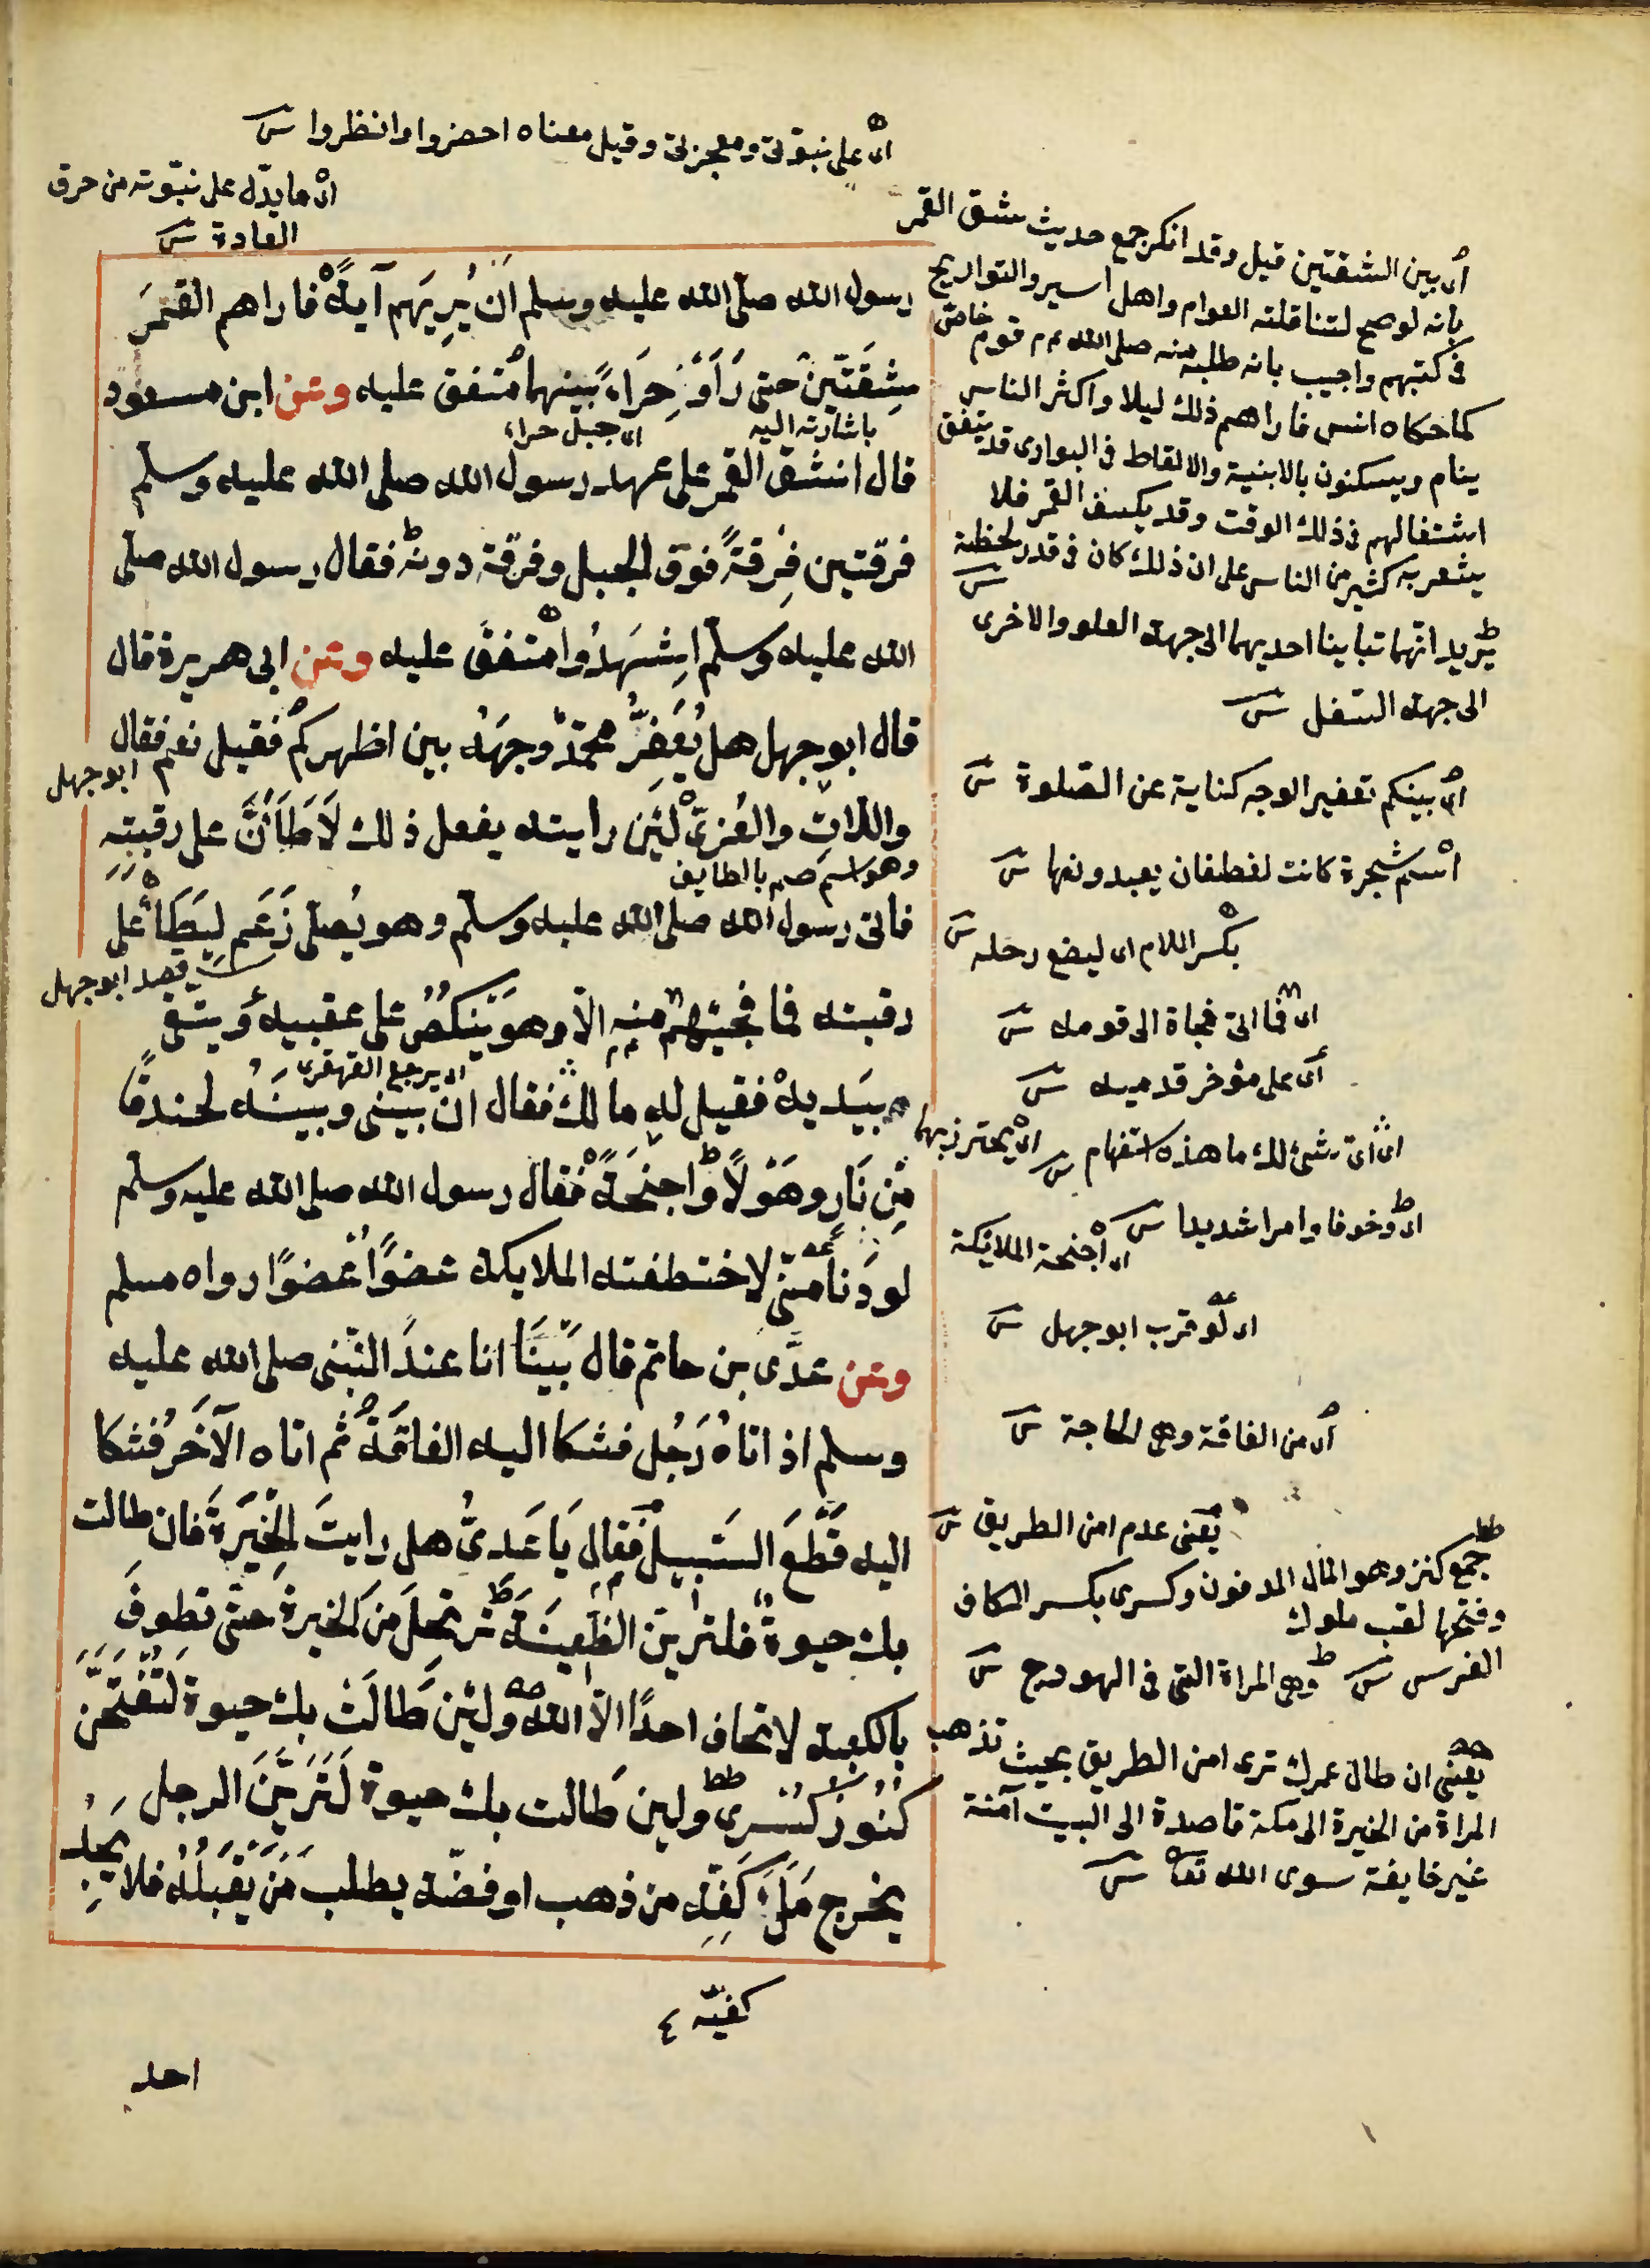 اى على نبوتى ومعجزتى وقيل معناه احضروا وانظروا
اى ما يدل على نبوته من خرق
العادة
رسول الله صلى الله عليه وسلم اَنْ يُرِيَهم آيةً فاراهم القمَرَ
شِقَتَيْن حتى رَاَوْ حِرَاءً بينهما مُتفق عليه وعن ابن مسعود
باشارته اليه
اى جبل حراء
قال انشق القمر على عهد رسول الله صلى الله عليه وسلم
فرقتين فِرقةً فوق الجبل وفرقة دونه فقال رسول الله صلى
الله عليه وسلم اِشهَدُوا متفق عليه وعن ابى هريرة قال
قال ابو جهل هل يُعَفِّرُ محمدٌ وجهَهُ بين اظهركم فقيل نعم فقال
ابو جهل
واللاتِ والعُزى لَئِن رايته يفعل ذلك لَاَطَاَنَّ على رقبتِه
وهو اسم صنم بالطايف
فاتى رسول الله صلى الله عليه وسلم وهو يُصلى زَعَم لِيَطَأَ على
قصد ابو جهل
رقبته فما فجئهم منهِ الّا وهو يَنكصُ على عقبيه ويتقى
اى يرجع القهقرى
بيَديه فقيل له ما لك فقال ان بينى وبينَهُ لخندقًا
مِّن نَارٍ وهَوْلًا واجنحَةً فقال رسول الله صلى الله عليه وسلم
لو دَنا مِنّى لاختطفته الملايكة عضوًا عُضوًا رواه مسلم
وعن عدَّى بن حاتم قال بَيْنَا انا عندَ النّبى صلى الله عليه
وسلم اذ اتاهُ رَجُل فشكا اليه الفاقَةَ ثم اتاه الآخَرُ فشكا
اليه قَطْعَ السَبيل فقال يَا عَدىُّ هل رايتَ الحِيَرةَ فان طالت
بك حيوةٌ فلترين الظَعِينَةَ ترتحلَ من الحيرة حتّى تطوفَ
بالكعبة لا تخاف احدًا الّا الله ولئن طَالَتْ بك حيوة لَتُفْتَحَنَّ
كنُوزُ كِسْرى ولين طالت بك حيوة لَتَرَيَنَّ الرجل
يخرج مَلَءَ كَفِّه من ذهب او فضّة يطلب مَنْ يَقْبَلُهُ فلا يجِدُ
كفيّه
احد
اى بين الشقتين قيل وقد انكر جمع حديث شق القمر
بانه لو صح لتناقلته العوام واهل السير والتواريخ
فى كتبهم واجيب بانه طلبه منه صلى الله قوم خاص
كما حكاه انس فاراهم ذلك ليلا واكثر الناس
ينام ويسكنون بالابنية والالقاط فى البوارى قد يتفق
اشتغالهم فى ذلك الوقت وقد يكسف القمر فلا
يشعر به كثير من الناس على ان ذلك كان فى قدر لحظة
يريد انهما تباينا احديهما الى جهة العلو والاخرى
الى جهة السفل
اى بينكم تعفير الوجه كناية عن الصلوة
اسم شجرة كانت لغطفان يعبدونها
بكسر اللام اى ليضع رحله
اى فما اتى فجاة الى قومه
اى على مؤخر قدميه
اى اى شئ لك ما هذه استفهام
اى يحترز بهما
اى وخوفا وامرا شديدا
اى اجنحة الملائكة
اى لو قرب ابو جهل
اى من الفاقة وهى الحاجة
يعنى عدم امن الطريق
جمع كنز وهو المال المدفون وكسرى بكسر الكاف
وفتحها لقب ملوك
الفرس وهى المراة التى فى الهودج
يعنى ان طال عمرك ترى امن الطريق بحيث تذهب
المراة من الحيرة الى مكة قاصدة الى البيت آمنة
غير خايفة سوى الله تعا